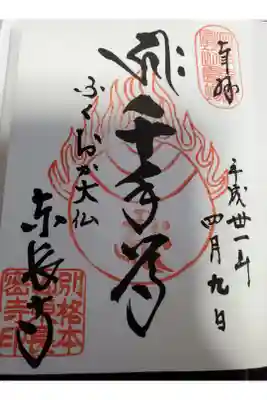 奉拝
平成廿一年
四月九日
千手尊
ふくおか大仏
東長寺
別格本
山東長
密寺印